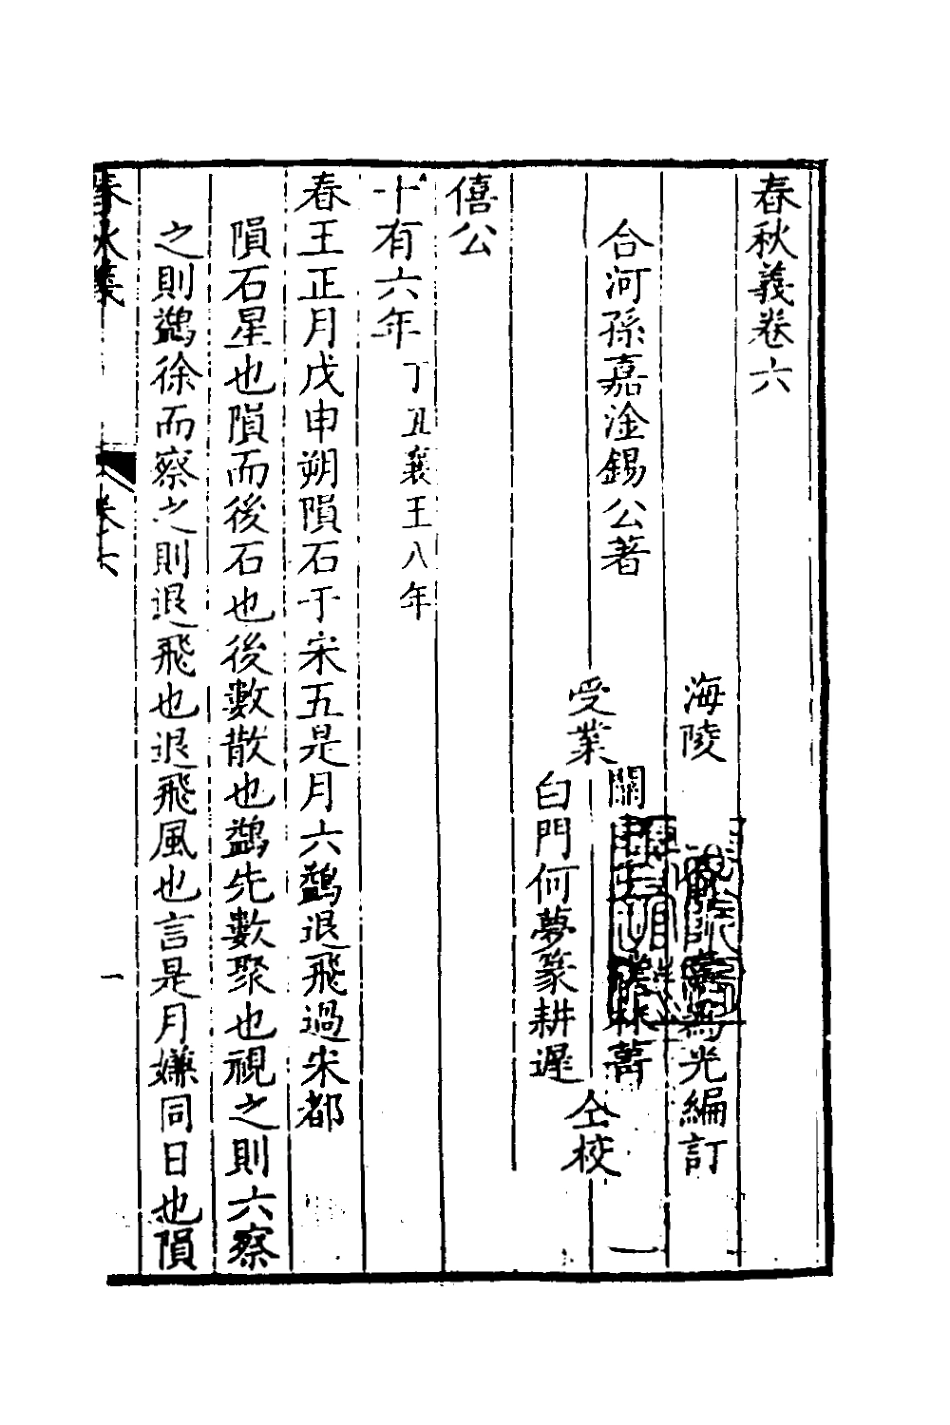 春秋義卷六
海陵
光編訂
合河孫嘉淦錫公著
受業
關
白門何夢篆耕遲
仝校
僖公
十有六年丁丑襄王八年
春王正月戊申朔隕石于宋五是月六鷁退飛過宋都
隕石星也隕而後石也後數散也鷁先數聚也視之則六察
之則鷁徐而察之則退飛也退飛風也言是月嫌同日也隕
春秋義
卷六
一